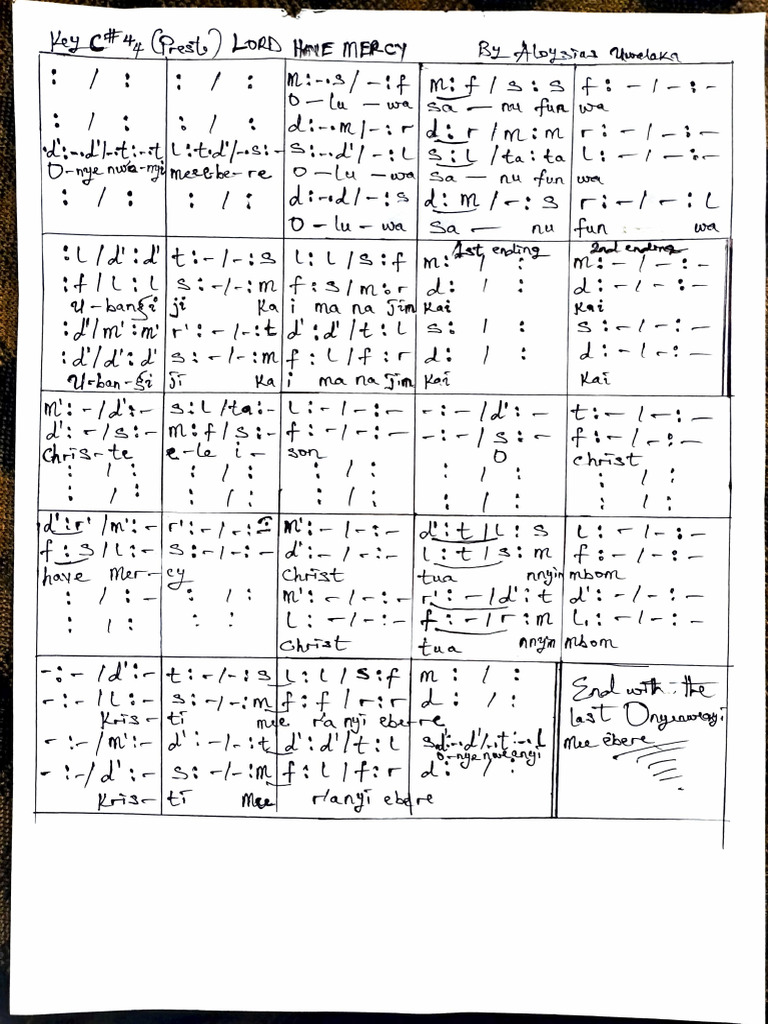 Key C# 4/4 (Prest.) LORD HAVE MERCY By Aloysius
: / : : / : m:-.s/-:f m:f/s:s f:-/-:-
O-lu-wa sa-nu fun wa
: / : : / : d:-.m/-:r d:r/m:m r:-/-:-
.d':-.d'/-.t:-.t l:t.d'/-.s:- s:-.d'/-:l s:l/ta:ta l:-/-:-
O-nye nwe-nyi mee-be-re O-lu-wa sa-nu fun wa
: / : : / : d:-.d/-:s d:m/-:s r:-/-:l
O-lu-wa sa-nu fun wa
1st ending 2nd ending
:l/d':d' t:-/-:s l:l/s:f m: / : m:-/-:-
:f/l:l s:-/-:m f:s/m:r d: / : d:-/-:-
U-bangi ji ka i ma na jim kai kai
:d'/m':m' r':-/-:t d':d'/t:l s: / : s:-/-:-
:d'/d':d' s:-/-:m f:l/f:r d: / : d:-/-:-
U-ban-gi ji ka i ma na jim kai kai
m':-/d':- s:l/ta:- l:-/-:- -:-/d':- t:-/-:-
d':-/s:- m:f/s:- f:-/-:- -:-/s:- f:-/-:-
Chris-te e-le i-son O christ
: / : : / : : / : : / : : / :
: / : : / : : / : : / : : / :
d':r'/m':- r':-/-:- m':-/-:- d':t/l:s l:-/-:-
f:s/l:- s:-/-:- d':-/-:- l:t/s:m f:-/-:-
have Mer-cy Christ tua nnyin mbom
: / :- : / : m':-/-:- r':-/d':t d':-/-:-
: / : : : l:-/-:- f:-/r:m l,:-/-:-
Christ tua nnyin mbom
-:-/d':- t:-/-:s l:l/s:f m : / : End with the
-:-/l:- s:-/-:m f:f/r:r d : / : last Onyenweanyi
Kris-ti mee r'a nyi ebere Mee ebere
-:-/m':- d':-/-:t d':d'/t:l sd':-.d'/-.t:-.l
O-nye nwe anyi
-:-/d':- s:-/-:m f:l/f:r d: / :
Kris-ti Mee r'anyi ebere